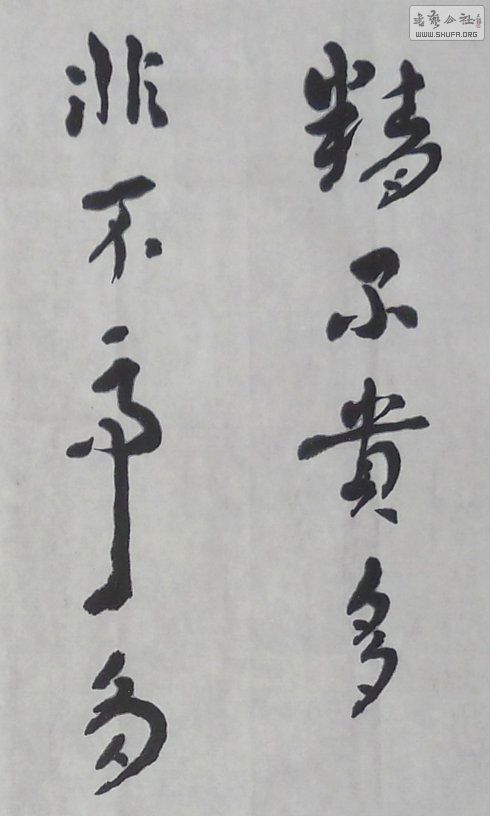 書藝公社
WWW.SHUFA.ORG
精不貴多
非不